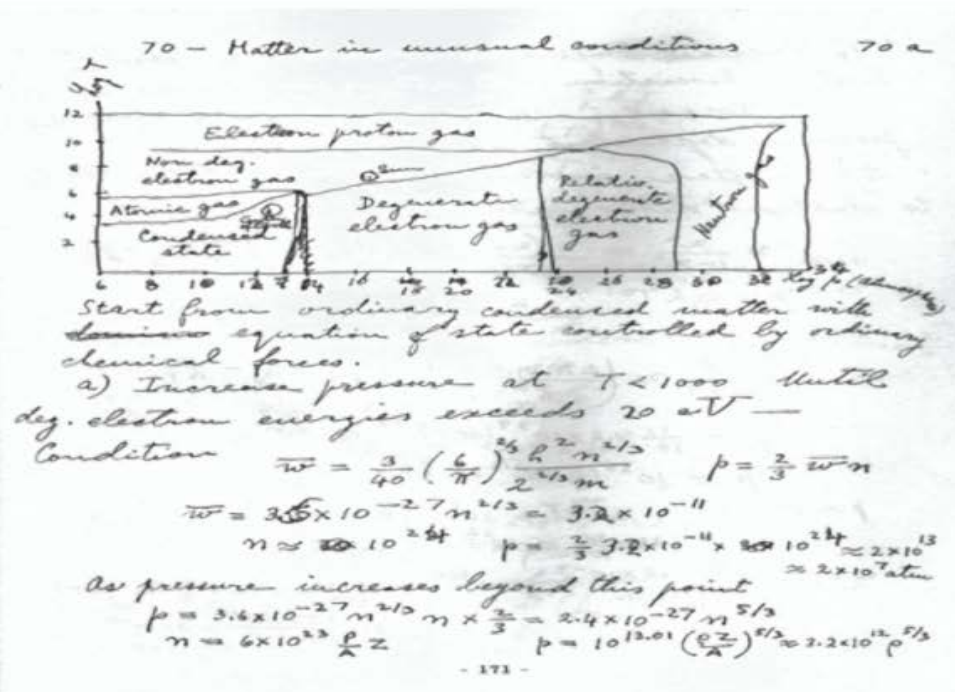 70 - Matter in unusual conditions 70 a
12
10
8
6
4
2
Electron proton gas
Non deg.
electron gas
Atomic gas
Condensed
state
Sun
Degenerate
electron gas
Relativ.
degenerate
electron
gas
Neutron
6 8 10 12 14 16 18 20 22 24 26 28 30 32 Log p (atmospheres)
Start from ordinary condensed matter with
equation of state controlled by ordinary
chemical forces.
a) Increase pressure at T < 1000 Until
deg. electron energies exceeds 20 eV —
Condition w̄ = 3/40 (6/π)^2/3 h^2 n^2/3 / 2^2/3 m p = 2/3 w̄ n
w̄ = 3.6 × 10^-27 n^2/3 = 3.2 × 10^-11
n ≈ 10^24 p = 2/3 3.2×10^-11 × 10^24 ≈ 2×10^13
≈ 2×10^7 atm
As pressure increases beyond this point
p = 3.6×10^-27 n^2/3 n × 2/3 = 2.4×10^-27 n^5/3
n = 6×10^23 ρ/A Z p = 10^13.01 (ρZ/A)^5/3 ≈ 3.2×10^12 ρ^5/3
- 171 -